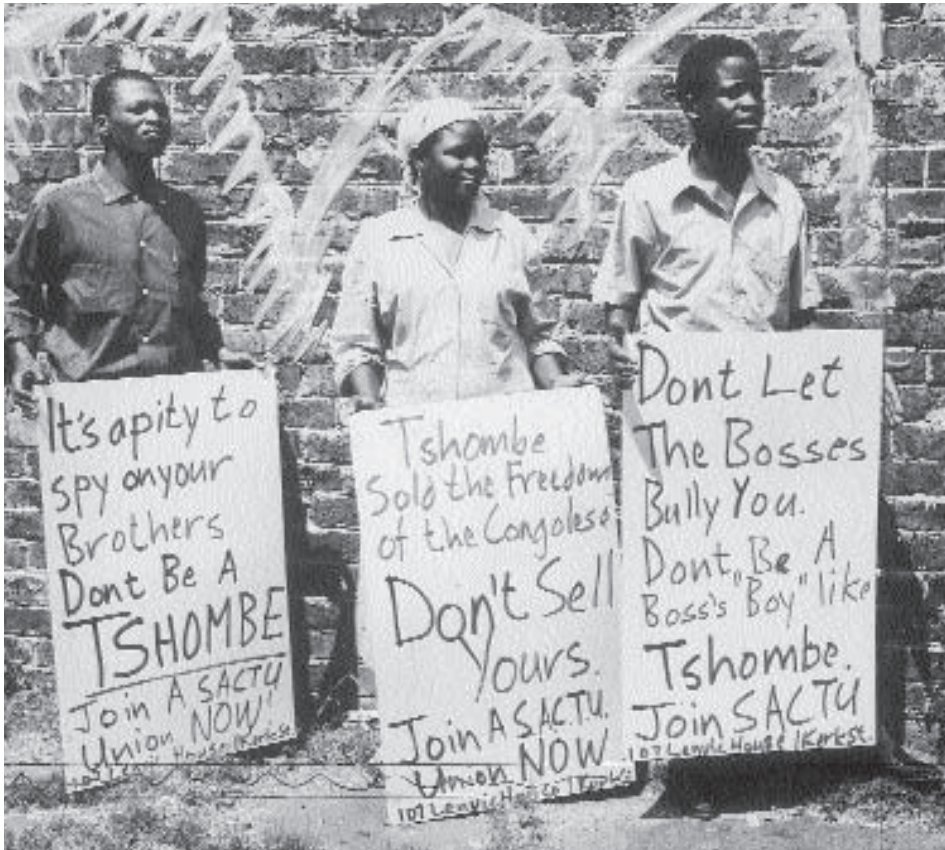 It's apity to
spy onyour
Brothers
Dont Be A
TSHOMBE
Join A SACTU
Union NOW!
107 Lenvic House 1Kerkst.
Tshombe
Sold the Freedom
of the Congolese
Don't Sell
Yours.
Join A SACTU.
Union NOW
107 Lenvic House 1Kerkst
Dont Let
The Bosses
Bully You.
Dont Be A
Boss's "Boy" like
Tshombe.
Join SACTU
107 Lenvic House 1Kerkst.